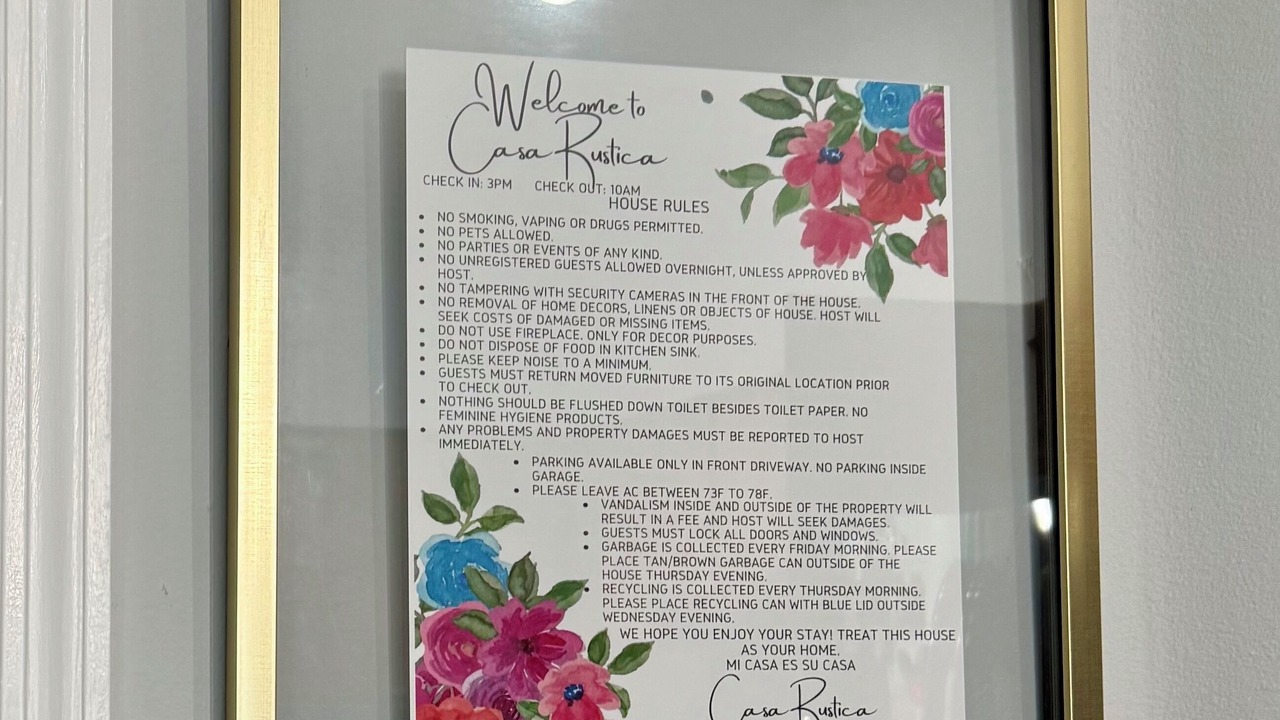 Welcome to
Casa Rustica
CHECK IN: 3PM CHECK OUT: 10AM
HOUSE RULES
• NO SMOKING, VAPING OR DRUGS PERMITTED.
• NO PETS ALLOWED.
• NO PARTIES OR EVENTS OF ANY KIND.
• NO UNREGISTERED GUESTS ALLOWED OVERNIGHT, UNLESS APPROVED BY
HOST.
• NO TAMPERING WITH SECURITY CAMERAS IN THE FRONT OF THE HOUSE.
• NO REMOVAL OF HOME DECORS, LINENS OR OBJECTS OF HOUSE. HOST WILL
SEEK COSTS OF DAMAGED OR MISSING ITEMS.
• DO NOT USE FIREPLACE. ONLY FOR DECOR PURPOSES.
• DO NOT DISPOSE OF FOOD IN KITCHEN SINK.
• PLEASE KEEP NOISE TO A MINIMUM.
• GUESTS MUST RETURN MOVED FURNITURE TO ITS ORIGINAL LOCATION PRIOR
TO CHECK OUT.
• NOTHING SHOULD BE FLUSHED DOWN TOILET BESIDES TOILET PAPER. NO
FEMININE HYGIENE PRODUCTS.
• ANY PROBLEMS AND PROPERTY DAMAGES MUST BE REPORTED TO HOST
IMMEDIATELY.
• PARKING AVAILABLE ONLY IN FRONT DRIVEWAY. NO PARKING INSIDE
GARAGE.
• PLEASE LEAVE AC BETWEEN 73F TO 78F.
• VANDALISM INSIDE AND OUTSIDE OF THE PROPERTY WILL
RESULT IN A FEE AND HOST WILL SEEK DAMAGES.
• GUESTS MUST LOCK ALL DOORS AND WINDOWS.
• GARBAGE IS COLLECTED EVERY FRIDAY MORNING. PLEASE
PLACE TAN/BROWN GARBAGE CAN OUTSIDE OF THE
HOUSE THURSDAY EVENING.
• RECYCLING IS COLLECTED EVERY THURSDAY MORNING.
PLEASE PLACE RECYCLING CAN WITH BLUE LID OUTSIDE
WEDNESDAY EVENING.
WE HOPE YOU ENJOY YOUR STAY! TREAT THIS HOUSE
AS YOUR HOME.
MI CASA ES SU CASA
Casa Rustica